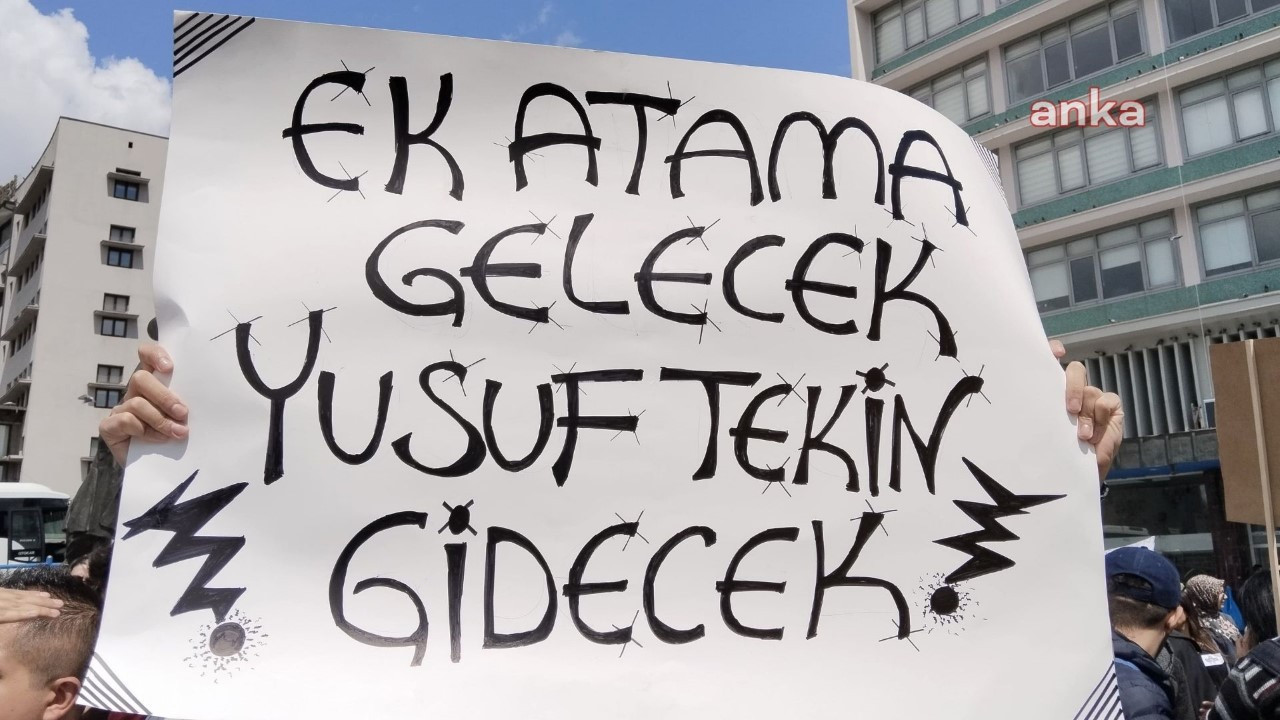 anka
EK ATAMA
GELECEK
YUSUF TEKİN
GİDECEK